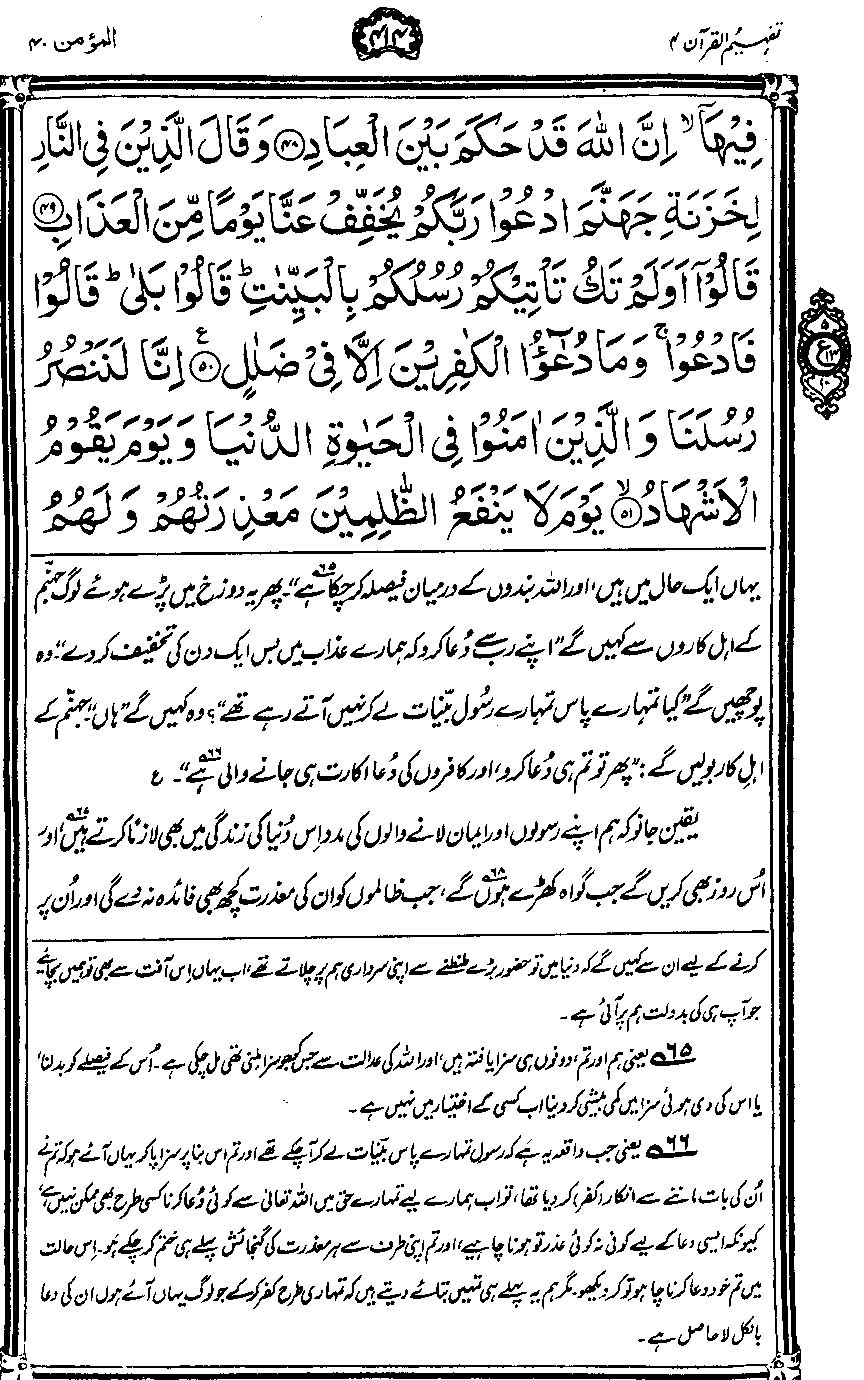 تفہیم القرآن ۴
۴۱۴
المؤمن ۴۰
فِيْهَاۤ ۙ اِنَّ اللّٰهَ قَدْ حَكَمَ بَيْنَ الْعِبَادِ ﴿۴۸﴾ وَقَالَ الَّذِيْنَ فِى النَّارِ
لِخَزَنَةِ جَهَنَّمَ ادْعُوْا رَبَّكُمْ يُخَفِّفْ عَنَّا يَوْمًا مِّنَ الْعَذَابِ ﴿۴۹﴾
قَالُوْۤا اَوَلَمْ تَكُ تَاْتِيْكُمْ رُسُلُكُمْ بِالْبَيِّنٰتِ ؕ قَالُوْا بَلٰى ؕ قَالُوْا
فَادْعُوْا ۚ وَمَا دُعٰٓؤُا الْكٰفِرِيْنَ اِلَّا فِىْ ضَلٰلٍ ﴿۵۰﴾ ع اِنَّا لَنَنْصُرُ
رُسُلَنَا وَالَّذِيْنَ اٰمَنُوْا فِى الْحَيٰوةِ الدُّنْيَا وَيَوْمَ يَقُوْمُ
الْاَشْهَادُ ﴿۵۱﴾ ۙ يَوْمَ لَا يَنْفَعُ الظّٰلِمِيْنَ مَعْذِرَتُهُمْ وَلَهُمُ
۵
ع ۱۳
۱۰
یہاں ایک حال میں ہیں، اور اللہ بندوں کے درمیان فیصلہ کر چکا ہے"۶۵۔ پھر یہ دوزخ میں پڑے ہوئے لوگ جہنّم
کے اہل کاروں سے کہیں گے "اپنے رب سے دُعا کرو کہ ہمارے عذاب میں بس ایک دن کی تخفیف کر دے"۔ وہ
پوچھیں گے "کیا تمہارے پاس تمہارے رسُول بیّنات لے کر نہیں آتے رہے تھے"؟ وہ کہیں گے "ہاں"۔ جہنّم کے
اہلِ کار بولیں گے: "پھر تو تم ہی دُعا کرو، اور کافروں کی دُعا اکارت ہی جانے والی ہے"۶۶۔ ع
یقین جانو کہ ہم اپنے رسولوں اور ایمان لانے والوں کی مدد اِس دُنیا کی زندگی میں بھی لازمًا کرتے ہیں۶۷، اور
اُس روز بھی کریں گے جب گواہ کھڑے ہوں گے۶۸، جب ظالموں کو ان کی معذرت کچھ بھی فائدہ نہ دے گی اور اُن پر
کرنے کے لیے ان سے کہیں گے کہ دنیا میں تو حضور بڑے طنطنے سے اپنی سرداری ہم پر چلاتے تھے، اب یہاں اِس آفت سے بھی تو ہمیں بچائیے
جو آپ ہی کی بدولت ہم پر آئی ہے۔
۶۵ یعنی ہم اور تم، دونوں ہی سزا یافتہ ہیں، اور اللہ کی عدالت سے جس کو جو سزا ملنی تھی مل چکی ہے۔ اُس کے فیصلے کو بدلنا،
یا اس کی دی ہوئی سزا میں کمی بیشی کر دینا اب کسی کے اختیار میں نہیں ہے۔
۶۶ یعنی جب واقعہ یہ ہے کہ رسول تمہارے پاس بیّنات لے کر آ چکے تھے اور تم اس بنا پر سزا پا کر یہاں آئے ہو کہ تم نے
اُن کی بات ماننے سے انکار (کفر) کر دیا تھا، تو اب ہمارے لیے تمہارے حق میں اللہ تعالیٰ سے کوئی دُعا کرنا کسی طرح بھی ممکن نہیں ہے،
کیونکہ ایسی دعا کے لیے کوئی نہ کوئی عذر تو ہونا چاہیے، اور تم اپنی طرف سے ہر معذرت کی گنجائش پہلے ہی ختم کر چکے ہو۔ اِس حالت
میں تم خود دعا کرنا چاہو تو کر دیکھو۔ مگر ہم یہ پہلے ہی تمہیں بتائے دیتے ہیں کہ تمہاری طرح کفر کر کے جو لوگ یہاں آئے ہوں ان کی دعا
بالکل لا حاصل ہے۔